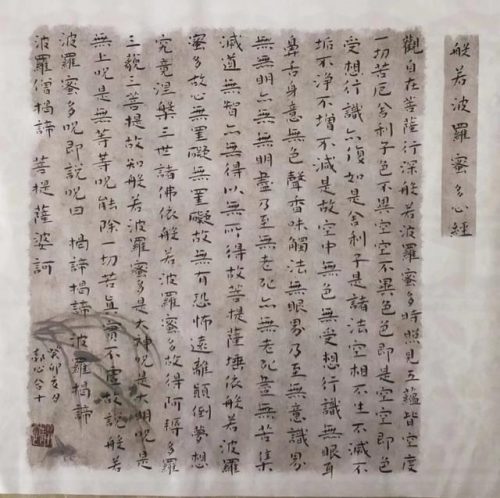 般若波羅蜜多心經
觀自在菩薩行深般若波羅蜜多時照見五蘊皆空度
一切苦厄舍利子色不異空空不異色色即是空空即色
受想行識亦復如是舍利子是諸法空相不生不滅不
垢不淨不增不減是故空中無色無受想行識無眼耳
鼻舌身意無色聲香味觸法無眼界乃至無意識界
無無明亦無無明盡乃至無老死亦無老死盡無苦集
滅道無智亦無得以無所得故菩提薩埵依般若波羅
蜜多故心無罣礙無罣礙故無有恐怖遠離顛倒夢想
究竟涅槃三世諸佛依般若波羅蜜多故得阿耨多羅
三藐三菩提故知般若波羅蜜多是大神呪是大明呪是
無上呪是無等等呪能除一切苦真實不虛故說般若
波羅蜜多呪即說呪曰 揭諦揭諦 波羅揭諦
波羅僧揭諦 菩提薩婆訶
癸卯
心合十